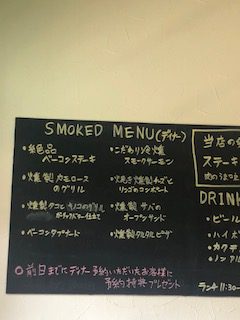 SMOKED MENU(ディナー)
・絶品
ベーコンステーキ
・燻製カモロース
のグリル
・燻製タコと
ガーリックバター仕立て
・ベーコンタプナード
・こだわり冷燻
スモークサーモン
リンゴのコンポート
・燻製サバの
オープンサンド
・燻製タルタルピザ
○前日までにディナー予約いただいたお客様に
予約特典プレゼント
当店の
ステーキ
肉のうまみ
DRIN
・ビール
・ハイボ
・カクテ
・ノンアル
ランチ11:30-